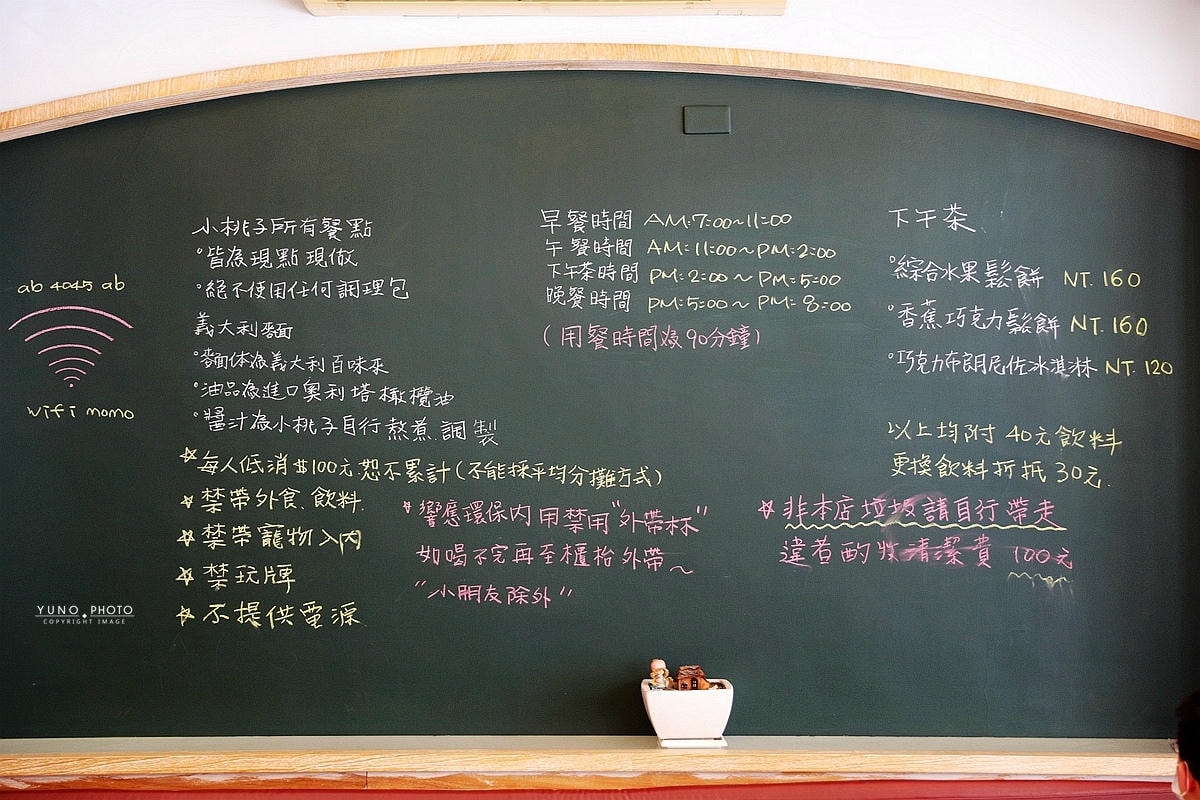 ab 4045 ab
wifi momo
小桃子所有餐點
°皆為現點現做
°絕不使用任何調理包
義大利麵
°麵体為義大利百味來
°油品為進口奧利塔橄欖油
°醬汁為小桃子自行熬煮調製
☆每人低消$100元恕不累計(不能採平均分攤方式)
☆禁帶外食、飲料
☆禁帶寵物入內
☆禁玩牌
☆不提供電源
早餐時間 AM:7:00~11:00
午餐時間 AM:11:00~PM:2:00
下午茶時間 PM:2:00~PM:5:00
晚餐時間 PM:5:00~PM:8:00
(用餐時間為90分鐘)
☆響應環保內用禁用"外帶杯"
如喝不完再至櫃枱外帶~
"小朋友除外"
下午茶
°綜合水果鬆餅 NT.160
°香蕉巧克力鬆餅 NT.160
°巧克力布朗尼佐冰淇淋 NT.120
以上均附40元飲料
更換飲料折抵30元.
☆非本店垃圾請自行帶走
違者酌收清潔費 100元
YUNO PHOTO
COPYRIGHT IMAGE